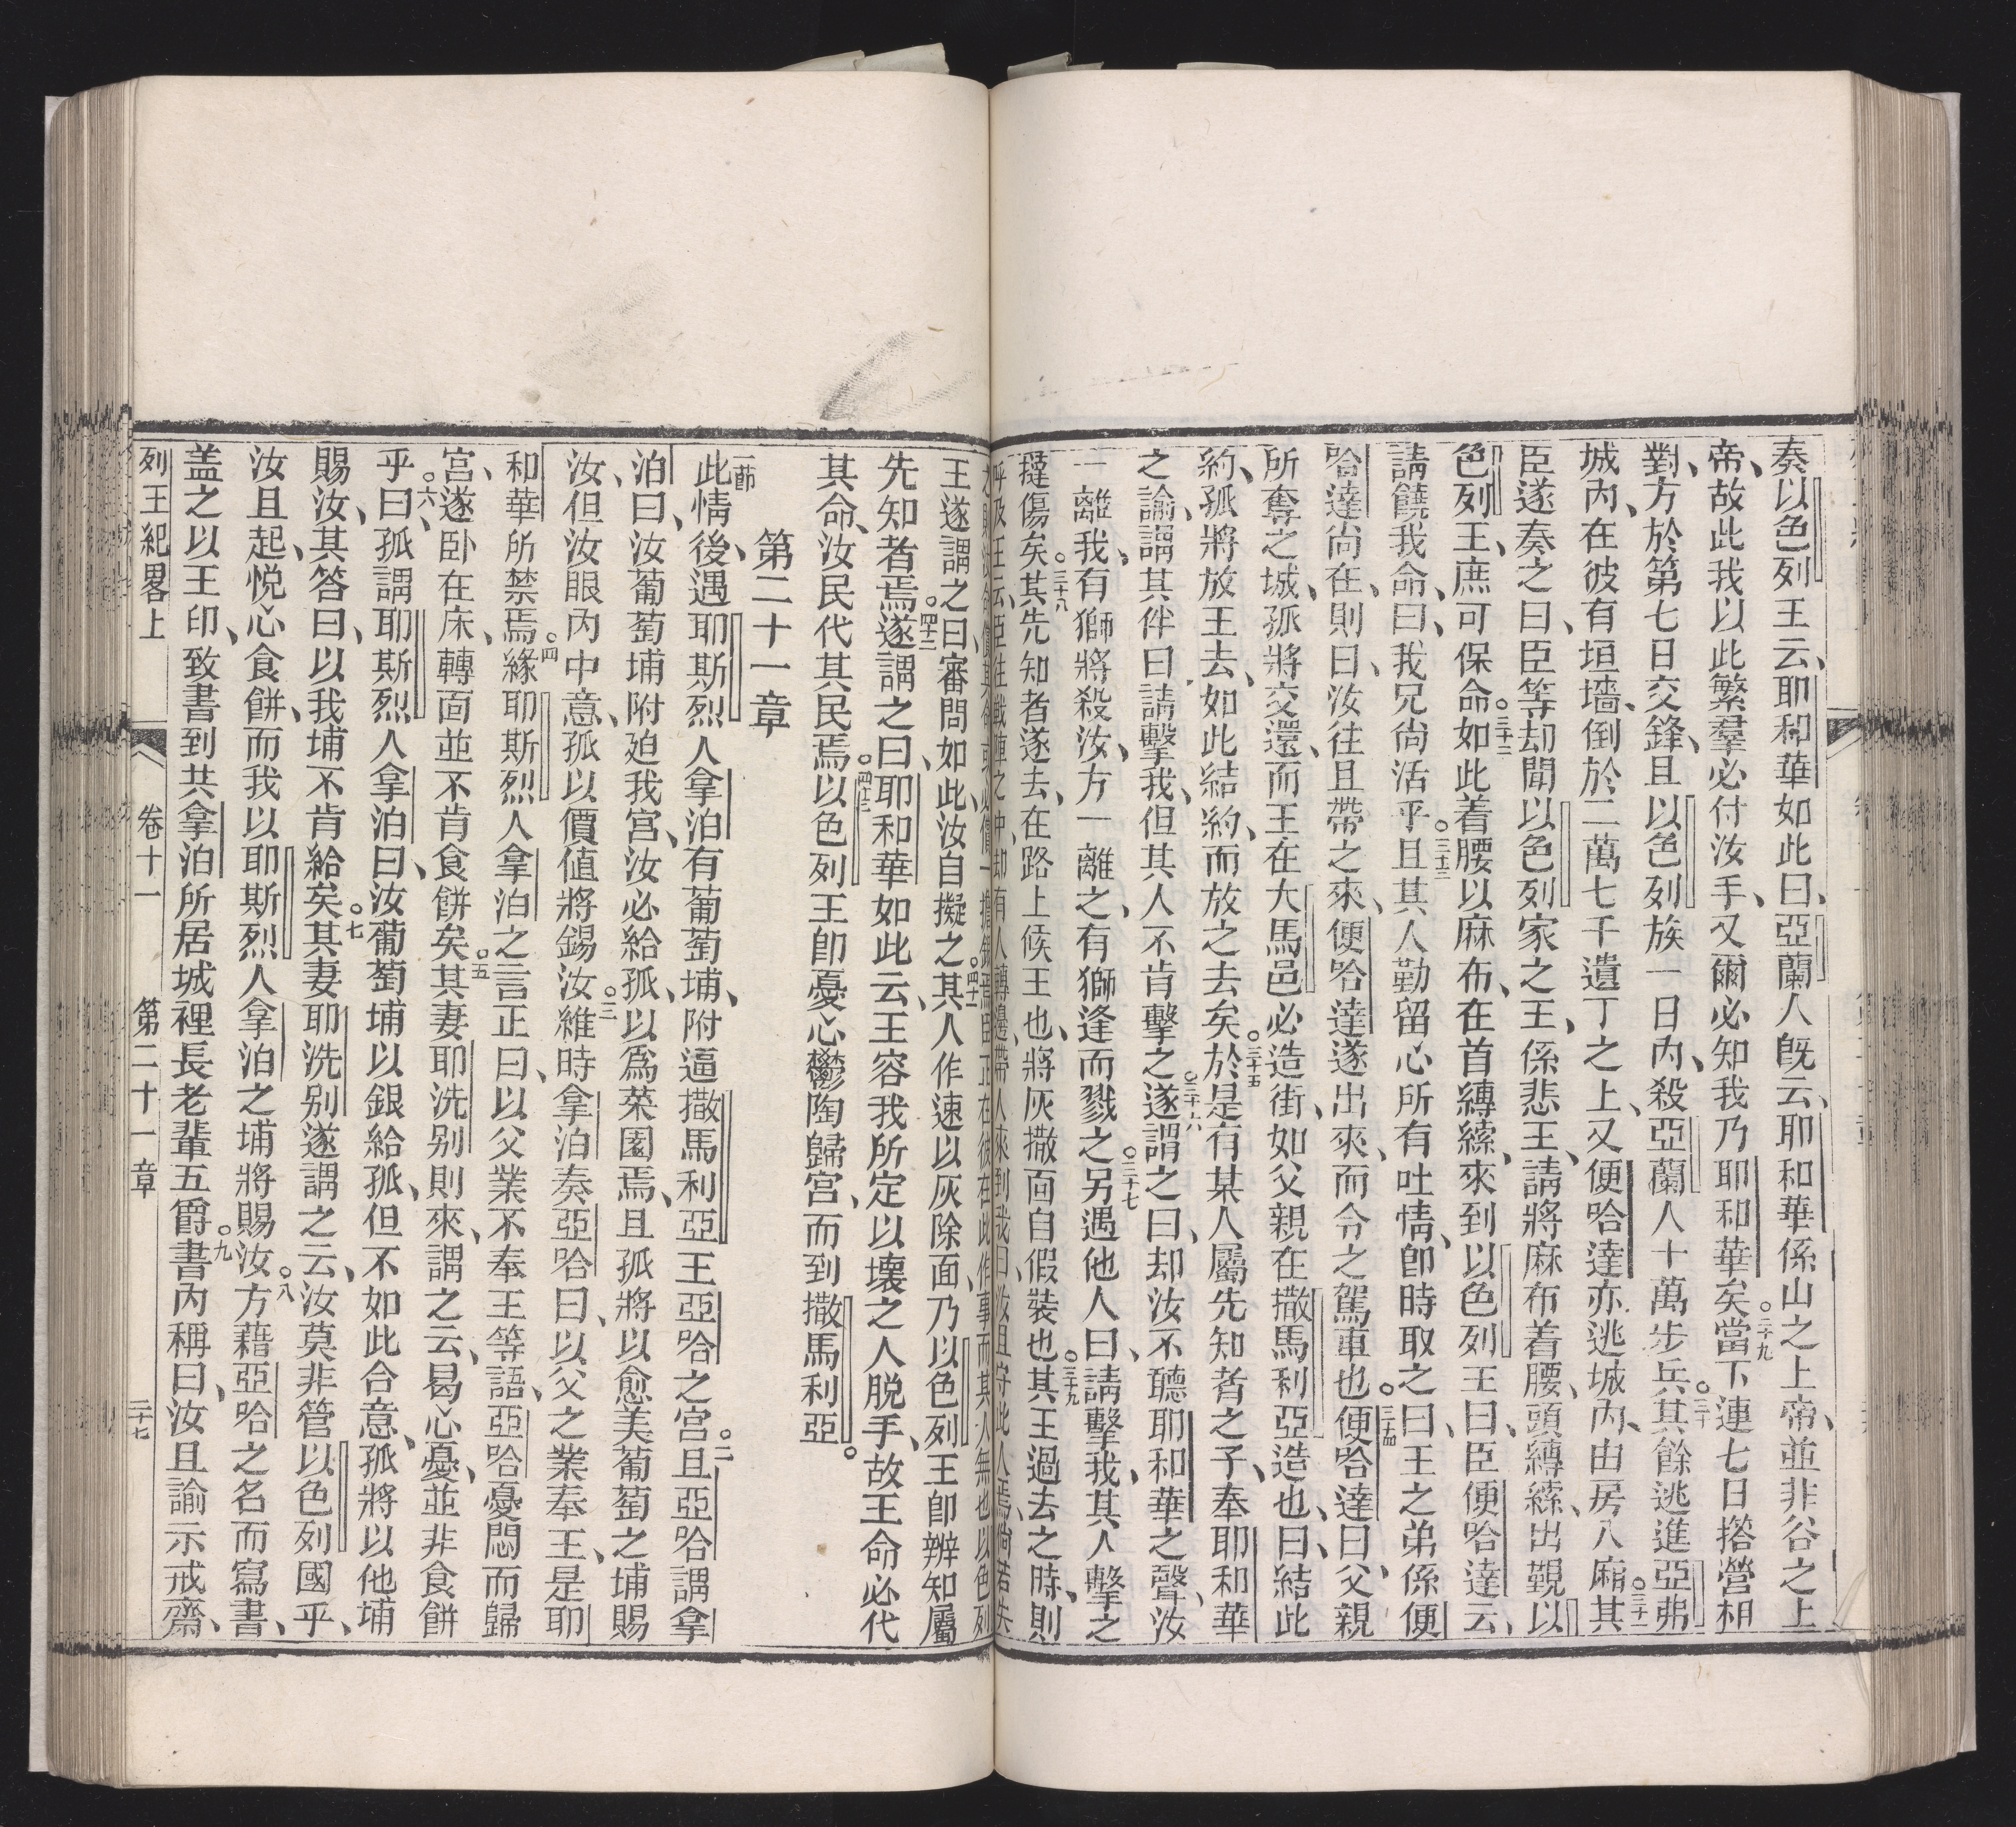 奏以色列王云、耶和華如此曰、亞蘭人旣云、耶和華係山之上帝、並非谷之上
帝、故此我以此繁羣必付汝手、又爾必知我乃耶和華矣。二十九當下連七日搭營相
對、方於第七日交鋒、且以色列族一日內、殺亞蘭人十萬步兵。三十其餘逃進亞弗
城內、在彼有垣墻、倒於二萬七千遺丁之上、又便哈達亦逃城內、由房入廂。三十一其
臣遂奏之曰、臣等却聞以色列家之王、係悲王、請將麻布着腰、頭縛繂、出覲以
色列王、庶可保命。三十二如此着腰以麻布、在首縛繂、來到以色列王曰、臣便哈達云、
請饒我命、曰、我兄尙活乎。三十三且其人勤留心所有吐情、卽時取之曰、王之弟係便
哈達尙在、則曰、汝往且帶之來、便哈達遂出來、而令之駕車也。三十四便哈達曰、父親
所奪之城、孤將交還、而王在大馬邑必造街、如父親在撒馬利亞造也、曰、結此
約、孤將放王去、如此結約、而放之去矣。三十五於是有某人屬先知者之子、奉耶和華
之諭、謂其伴曰、請擊我、但其人不肯擊之。三十六遂謂之曰、却汝不聽耶和華之聲、汝
一離我、有獅將殺汝、方一離之、有獅逢而戮之。三十七另遇他人曰、請擊我、其人擊之
撻傷矣。三十八其先知者遂去、在路上候王也、將灰撒面自假裝也。三十九其王過去之時、則
呼及王云、臣往戰陣之中、却有人轉邊、帶人來到我曰、汝且守此人焉、倘若失
王遂謂之曰、審問如此、汝自擬之。四十一其人作速以灰除面、乃以色列王卽辨知屬
先知者焉。四十二遂謂之曰、耶和華如此云、王容我所定以壞之人脫手、故王命必代
其命、汝民代其民焉。四十三以色列王卽憂心鬱陶歸宮、而到撒馬利亞。
第二十一章
一節此情後、遇耶斯烈人拿泊有葡萄埔、附逼撒馬利亞王亞哈之宮。二且亞哈謂拿
泊曰、汝葡萄埔附廹我宮、汝必給孤、以爲菜園焉、且孤將以愈美葡萄之埔賜
汝、但汝眼內中意、孤以價值將錫汝。三維時拿泊奏亞哈曰、以父之業奉王、是耶
和華所禁焉。四緣耶斯烈人拿泊之言正曰、以父業不奉王等語、亞哈憂悶而歸
宮、遂卧在床、轉面並不肯食餅矣。五其妻耶洗别則來、謂之云、曷心憂、並非食餅
乎。六曰、孤謂耶斯烈人拿泊曰、汝葡萄埔以銀給孤、但不如此合意、孤將以他埔
賜汝、其答曰、以我埔不肯給矣。七其妻耶洗别遂謂之云、汝莫非管以色列國乎、
汝且起、悦心食餅、而我以耶斯烈人拿泊之埔將賜汝。八方藉亞哈之名而寫書、
盖之以王印、致書到共拿泊所居城裡長老輩五爵。九書內稱曰、汝且諭示戒齋、
列王紀畧上　卷十一　第二十一章　二十七